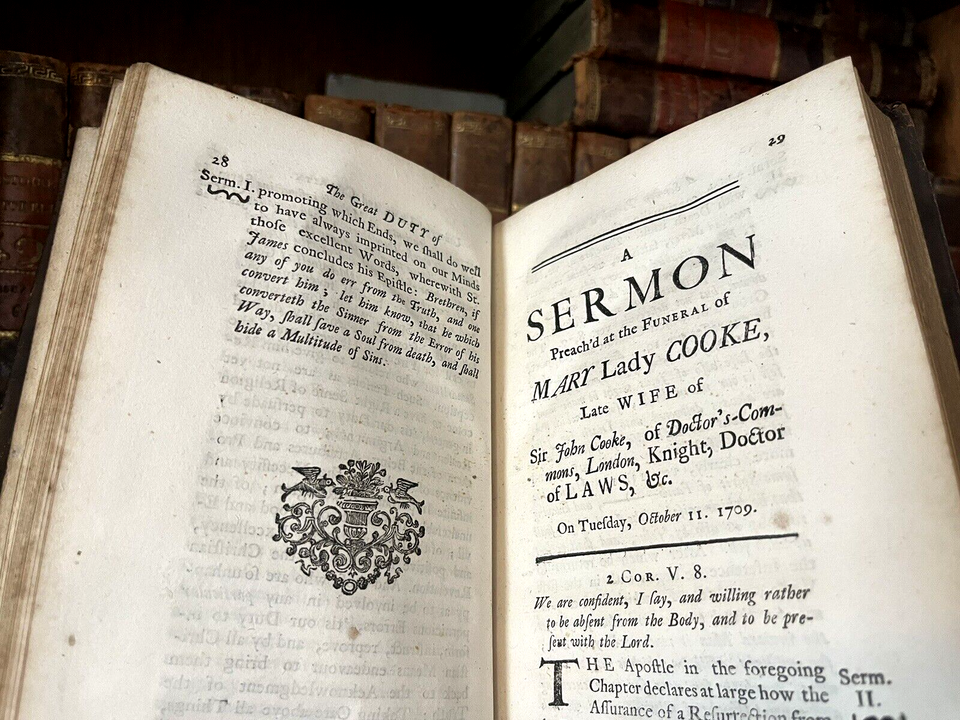 28
The Great DUTY of
Serm. I. promoting which Ends, we ſhall do well
to have always imprinted on our Minds
thoſe excellent Words, wherewith St.
James concludes his Epiſtle: Brethren, if
any of you do err from the Truth, and one
convert him; let him know, that he which
converteth the Sinner from the Error of his
Way, ſhall ſave a Soul from death, and ſhall
hide a Multitude of Sins.
29
A
SERMON
Preach'd at the FUNERAL of
MARY Lady COOKE,
Late WIFE of
Sir John Cooke, of Doctor's-Com-
mons, London, Knight, Doctor
of LAWS, &c.
On Tueſday, October 11. 1709.
2 COR. V. 8.
We are confident, I ſay, and willing rather
to be abſent from the Body, and to be pre-
ſent with the Lord.
THE Apoſtle in the foregoing
Serm. II.
Chapter declares at large how the
Aſſurance of a Reſurrection from